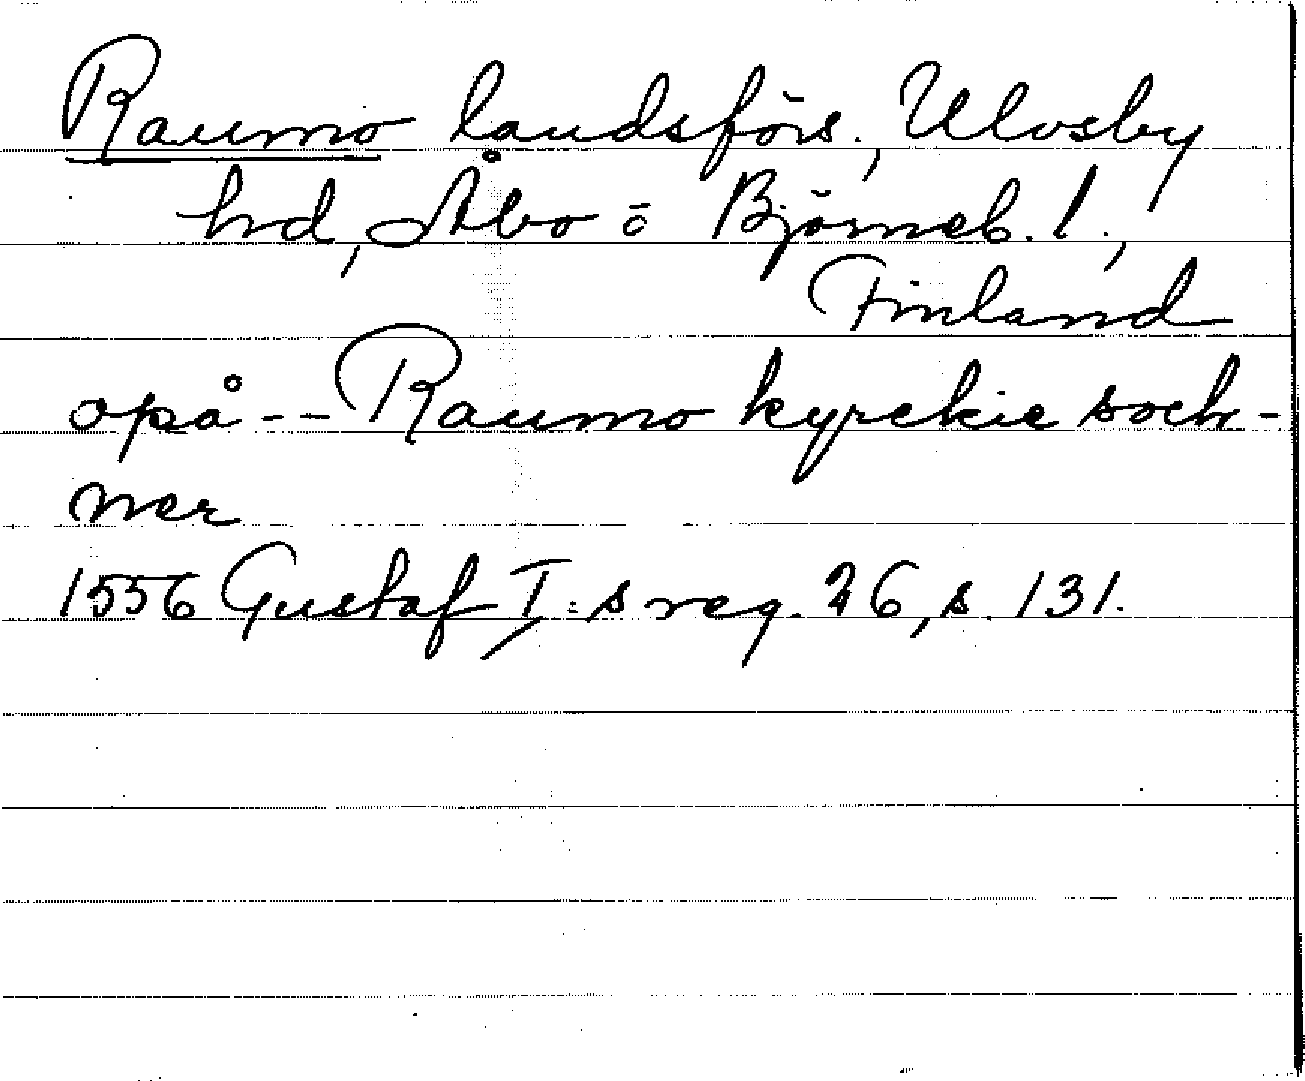 Raumo landsförs., Ulvsby
hd, Åbo o Björneb. l.,
Finland
opå -- Raumo kyrckie soch-
ner
1556 Gustaf I:s reg. 26, s. 131.